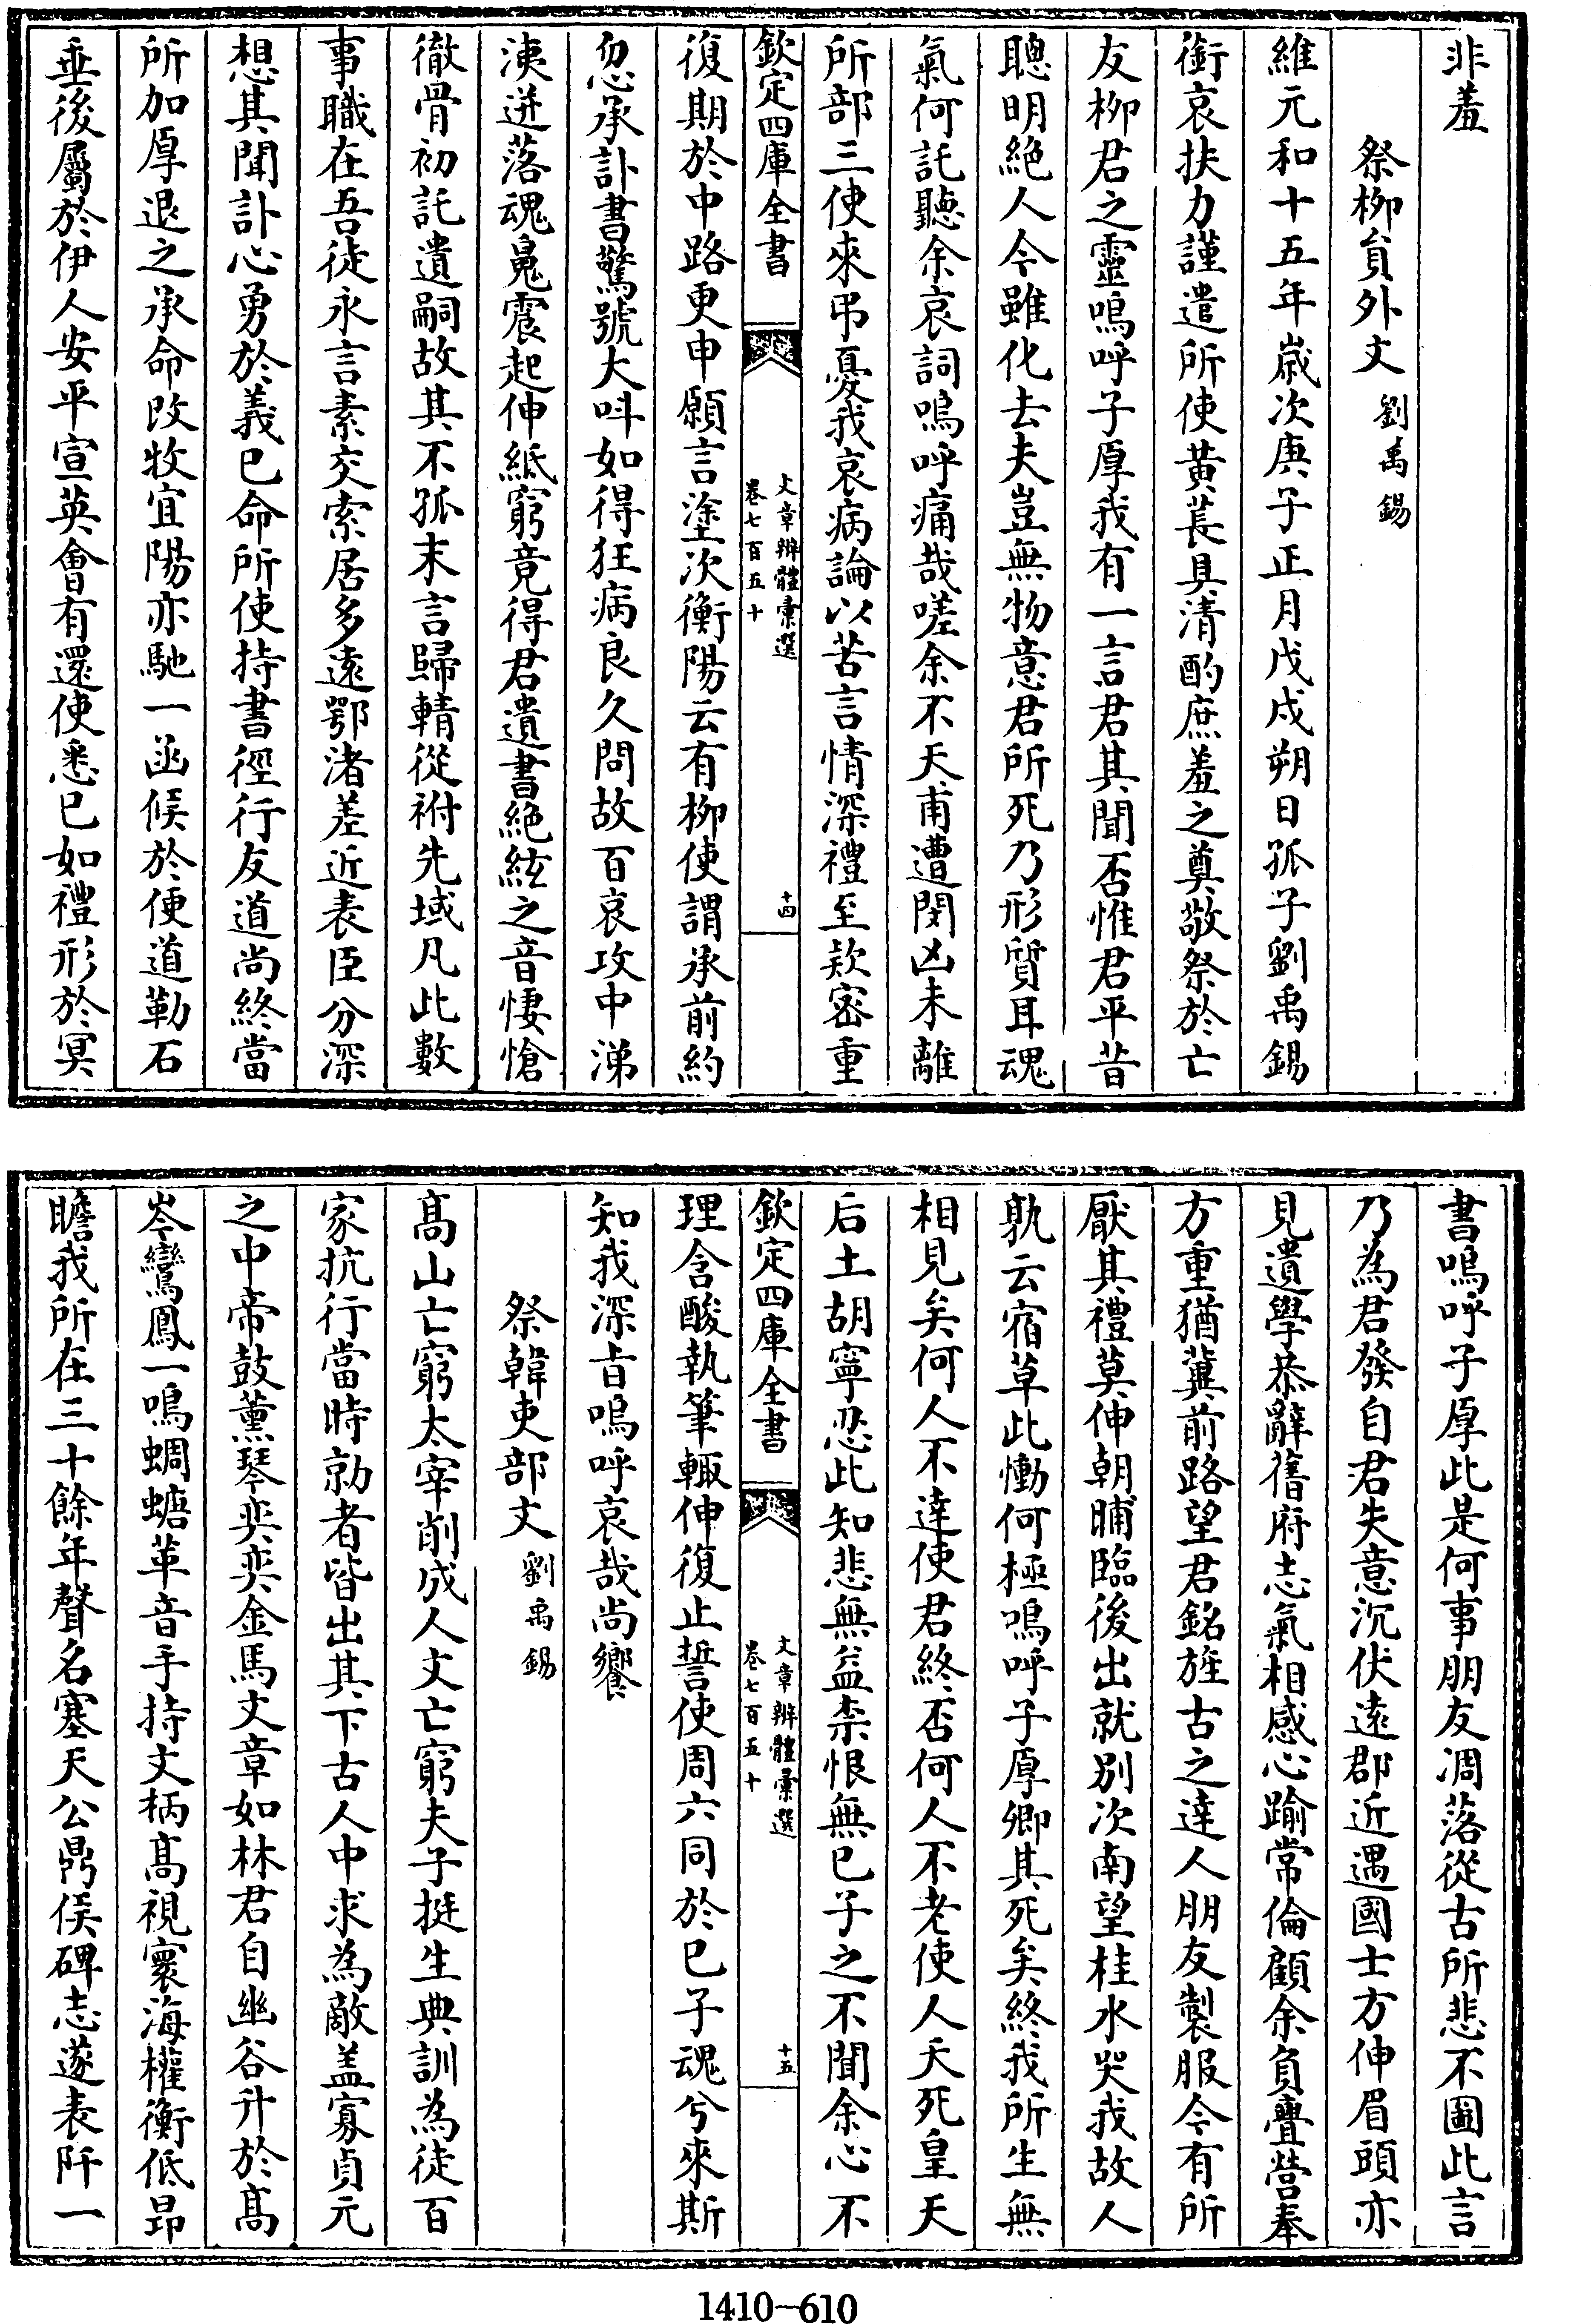 非羞
祭柳貟外文 劉禹錫
維元和十五年歲次庚子正月戊戌朔日孤子劉禹錫
銜哀扶力謹遣所使黃萇具清酌庶羞之奠敬祭於亡
友柳君之靈嗚呼子厚我有一言君其聞否惟君平昔
聰明絶人今雖化去夫豈無物意君所死乃形質耳魂
氣何託聽余哀詞嗚呼痛哉嗟余不天甫遭閔凶未離
所部三使來弔憂我哀病論以苦言情深禮至欵密重
欽定四庫全書 文章辨體彙選 卷七百五十 十四
復期於中路更申願言塗次衡陽云有柳使謂承前約
忽承訃書驚號大呌如得狂病良久問故百哀攻中涕
洟迸落魂鬼震起伸紙窮竟得君遺書絶絃之音悽愴
徹骨初託遺嗣故其不孤末言歸輤從祔先域凡此數
事職在吾徒永言素交索居多逺鄂渚差近表臣分深
想其聞訃心勇於義已命所使持書徑行友道尚終當
所加厚退之承命改牧宜陽亦馳一函候於便道勒石
垂後屬於伊人安平宣英會有還使悉已如禮形於冥
書嗚呼子厚此是何事朋友凋落從古所悲不圖此言
乃為君發自君失意沉伏逺郡近遇國士方伸眉頭亦
見遺學恭辭舊府志氣相感心踰常倫顧余負釁營奉
方重猶冀前路望君銘旌古之達人朋友製服今有所
厭其禮莫伸朝晡臨後出就别次南望桂水哭我故人
孰云宿草此慟何極嗚呼子厚卿其死矣終我所生無
相見矣何人不達使君終否何人不老使人夭死皇天
后土胡寧忍此知悲無益柰恨無已子之不聞余心不
欽定四庫全書 文章辨體彙選 卷七百五十 十五
理含酸執筆輙伸復止誓使周六同於已子魂兮來斯
知我深㫖嗚呼哀哉尚饗
祭韓吏部文 劉禹錫
髙山亡窮太宰削成人文亡窮夫子挺生典訓為徒百
家抗行當時勍者皆出其下古人中求為敵盖寡貞元
之中帝鼓薰琴奕奕金馬文章如林君自幽谷升於髙
岑鸞鳳一鳴蜩螗革音手持文柄髙視寰海權衡低昻
瞻我所在三十餘年聲名塞天公鼎侯碑志遂表阡一
1410—610